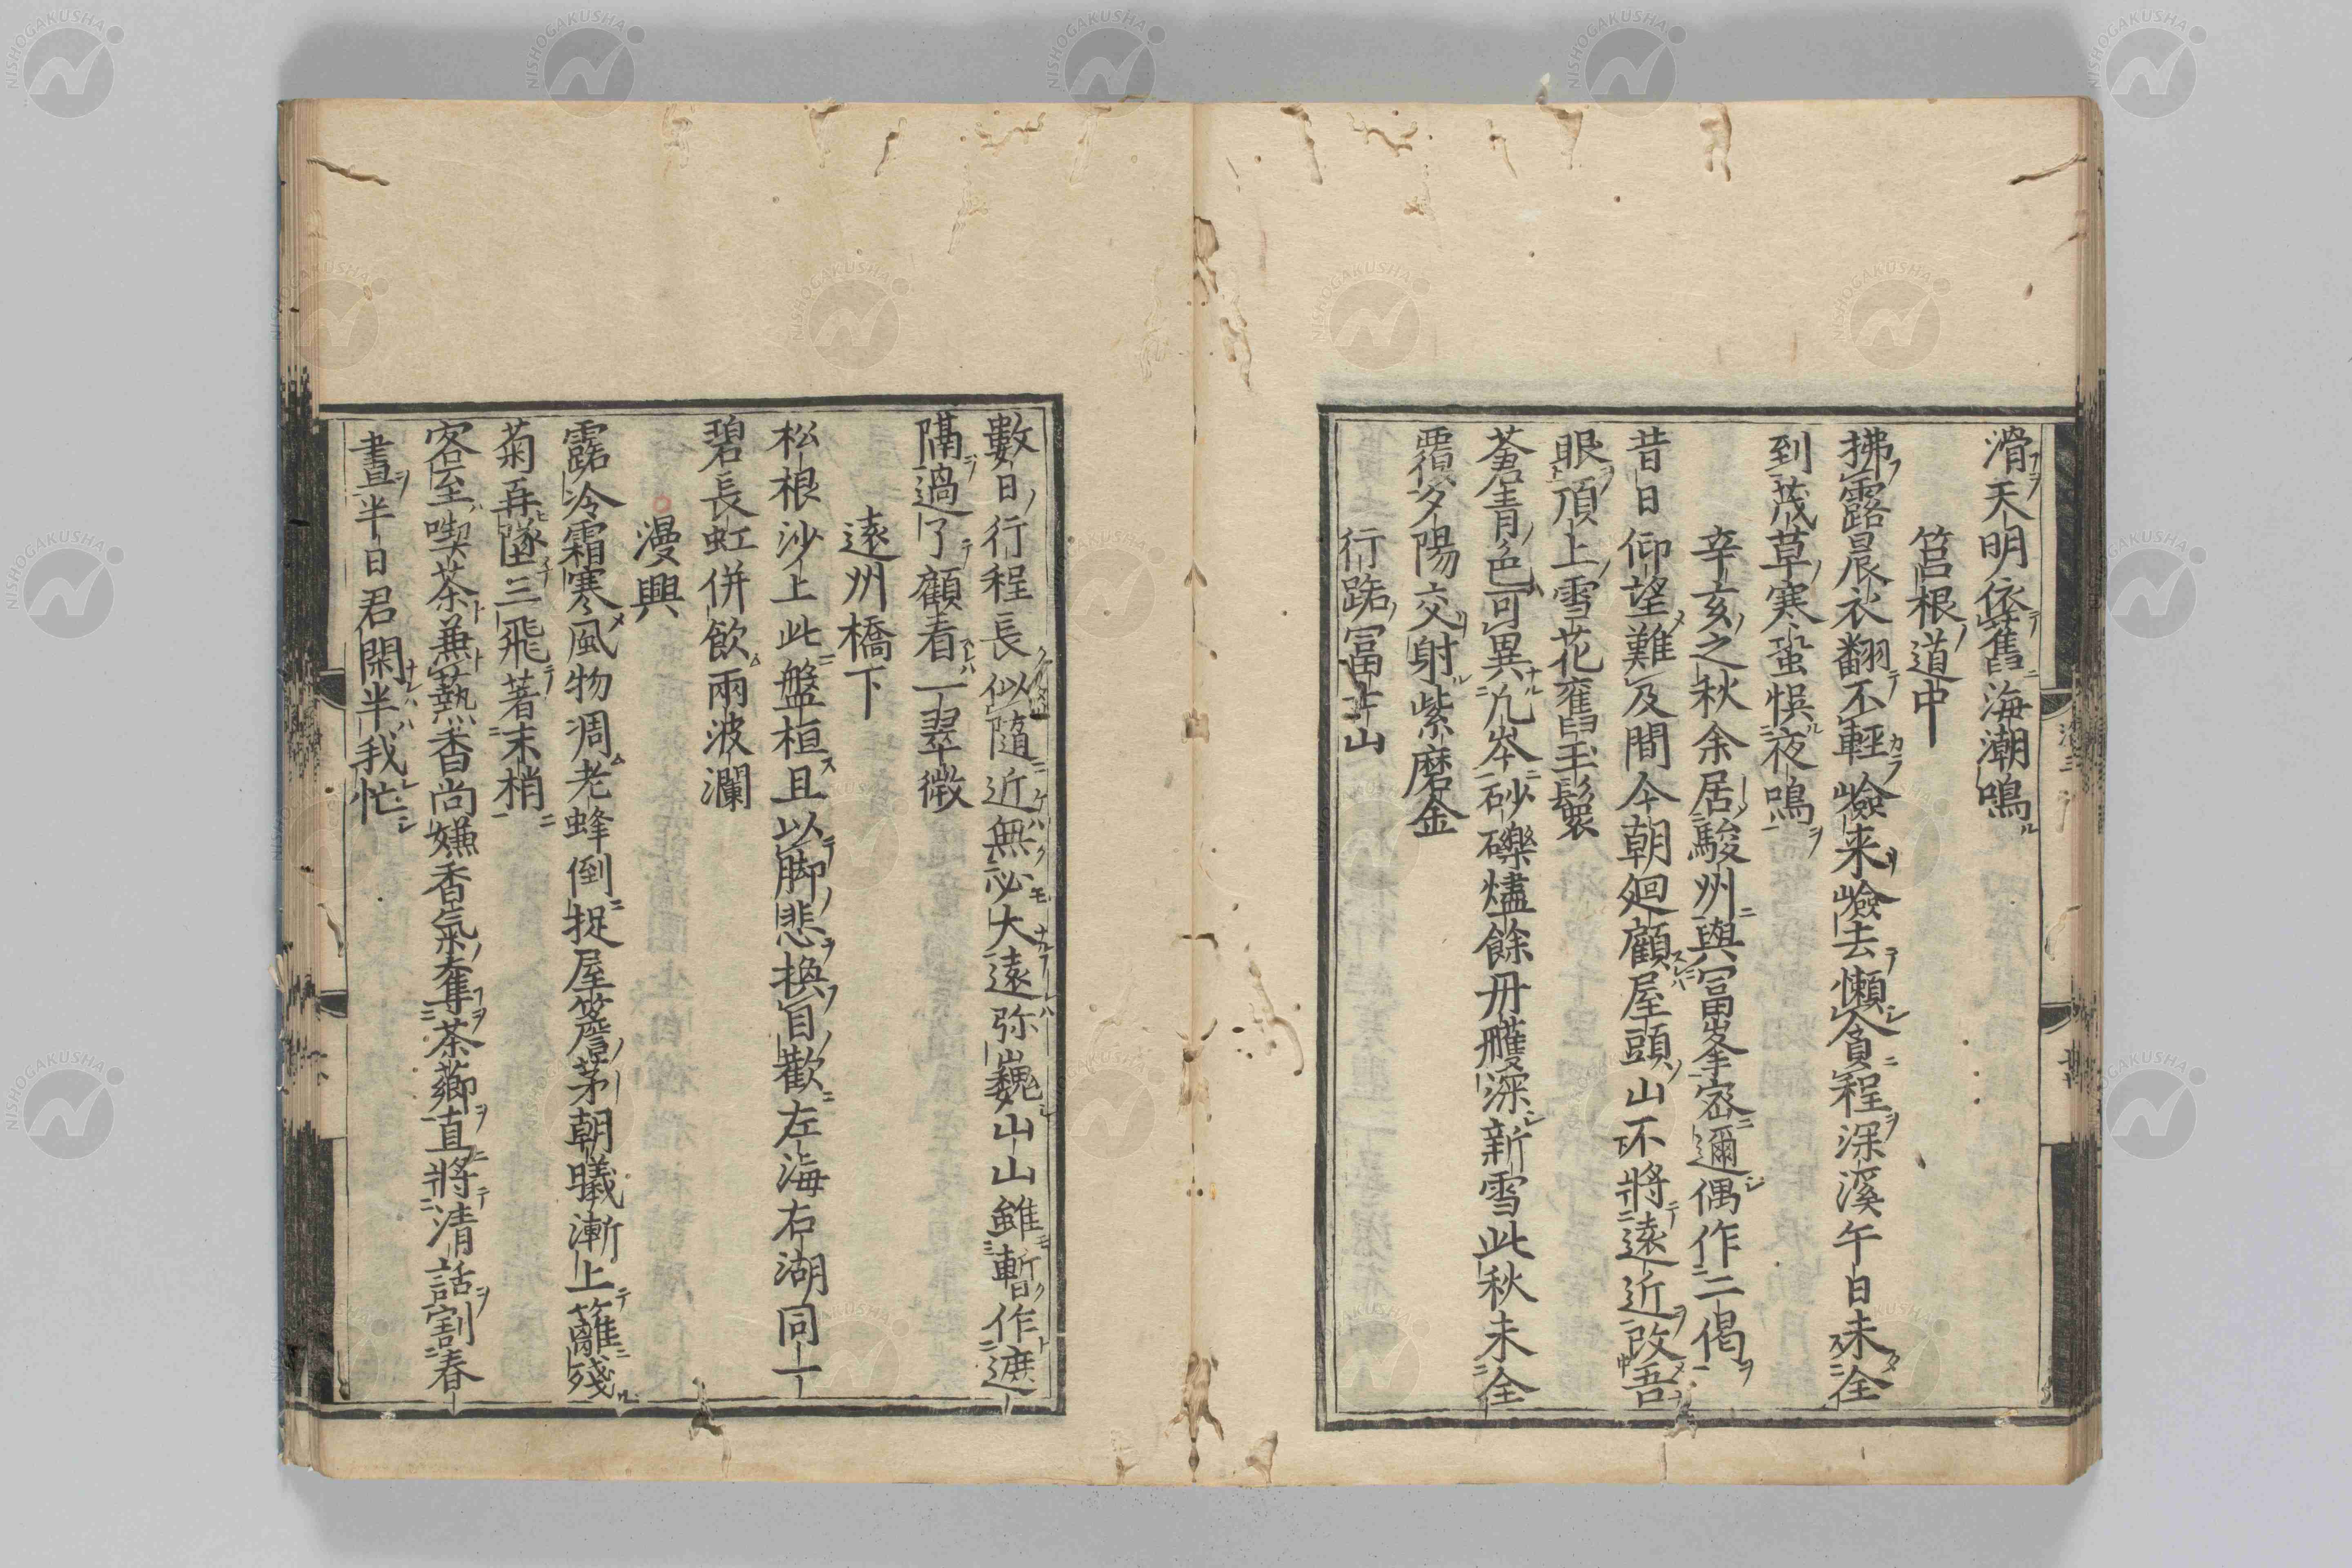 滑天明依舊海潮鳴
筥根道中
拂露晨衣翻不輕嶮来嶮去懶貪程深溪午日未全
到茂草寒蛩悞夜鳴
辛亥之秋余居駿州與冨峯密邇偶作二偈
昔日仰望難及間今朝廻顧屋頭山不將遠近改吾
眼頂上雪花舊玉鬟
蒼青色可異九岑砂礫燼餘丹雘深新雪此秋未全
覆夕陽交射紫磨金
行路冨士山
數日行程長似隨近無祕大遠弥巍山山雖暫作遮
隔過了顧看一翠微
遠州橋下
松根沙上此盤桓且以脚悲換目歡左海右湖同一
碧長虹併飲兩波瀾
漫興
露冷霜寒風物凋老蜂倒捉屋簷茅朝曦漸上籬殘
菊再墜三飛著末梢
客至喫茶兼爇香尚嫌香氣奪茶薌直將清話割春
晝半日君閑半我忙